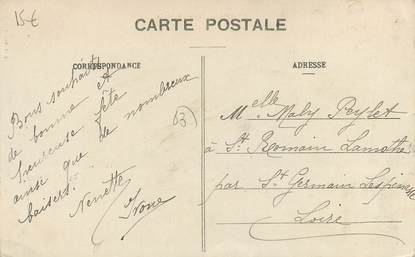 15€
CARTE POSTALE
CORRESPONDANCE
ADRESSE
Bons souhaits
de bonne et
heureuse fête
ainsi que de nombreux
baisers.
Nenette
Yvone
63
Melle Maly Peylet
à St Romain Lamothe
par St Germain Lespinasse
Loire